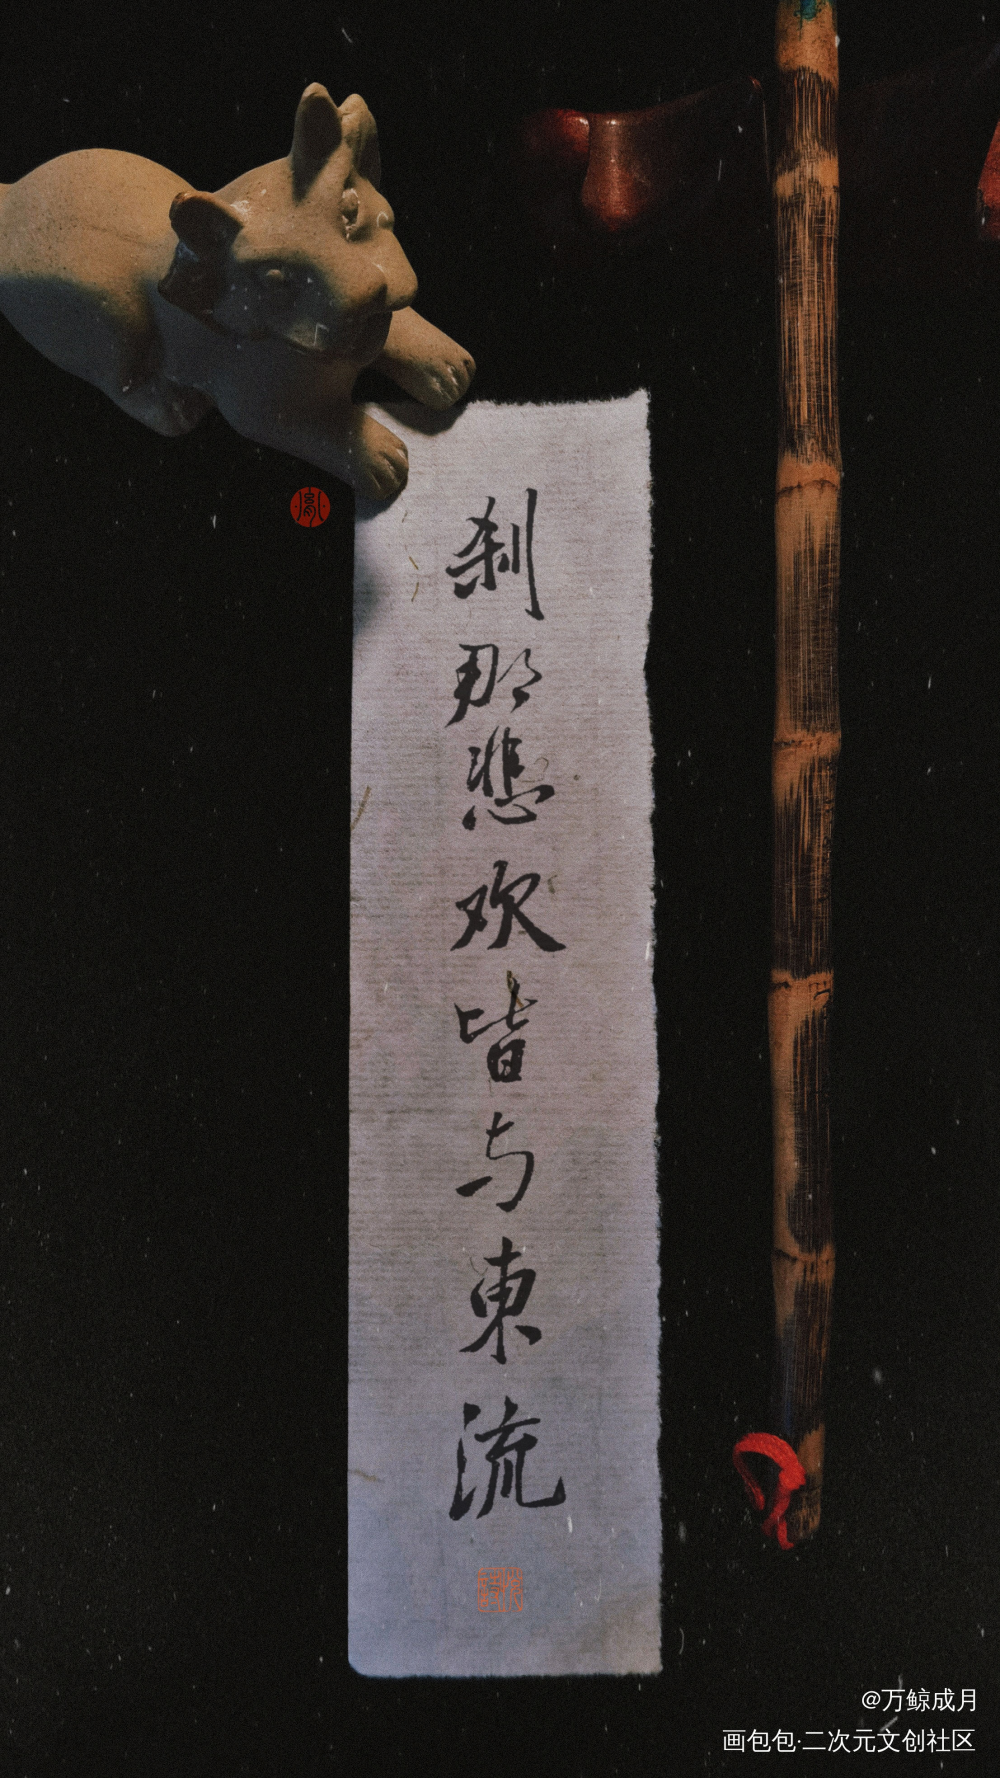 刹那悲欢皆与東流
@万鲸成月
画包包·二次元文创社区